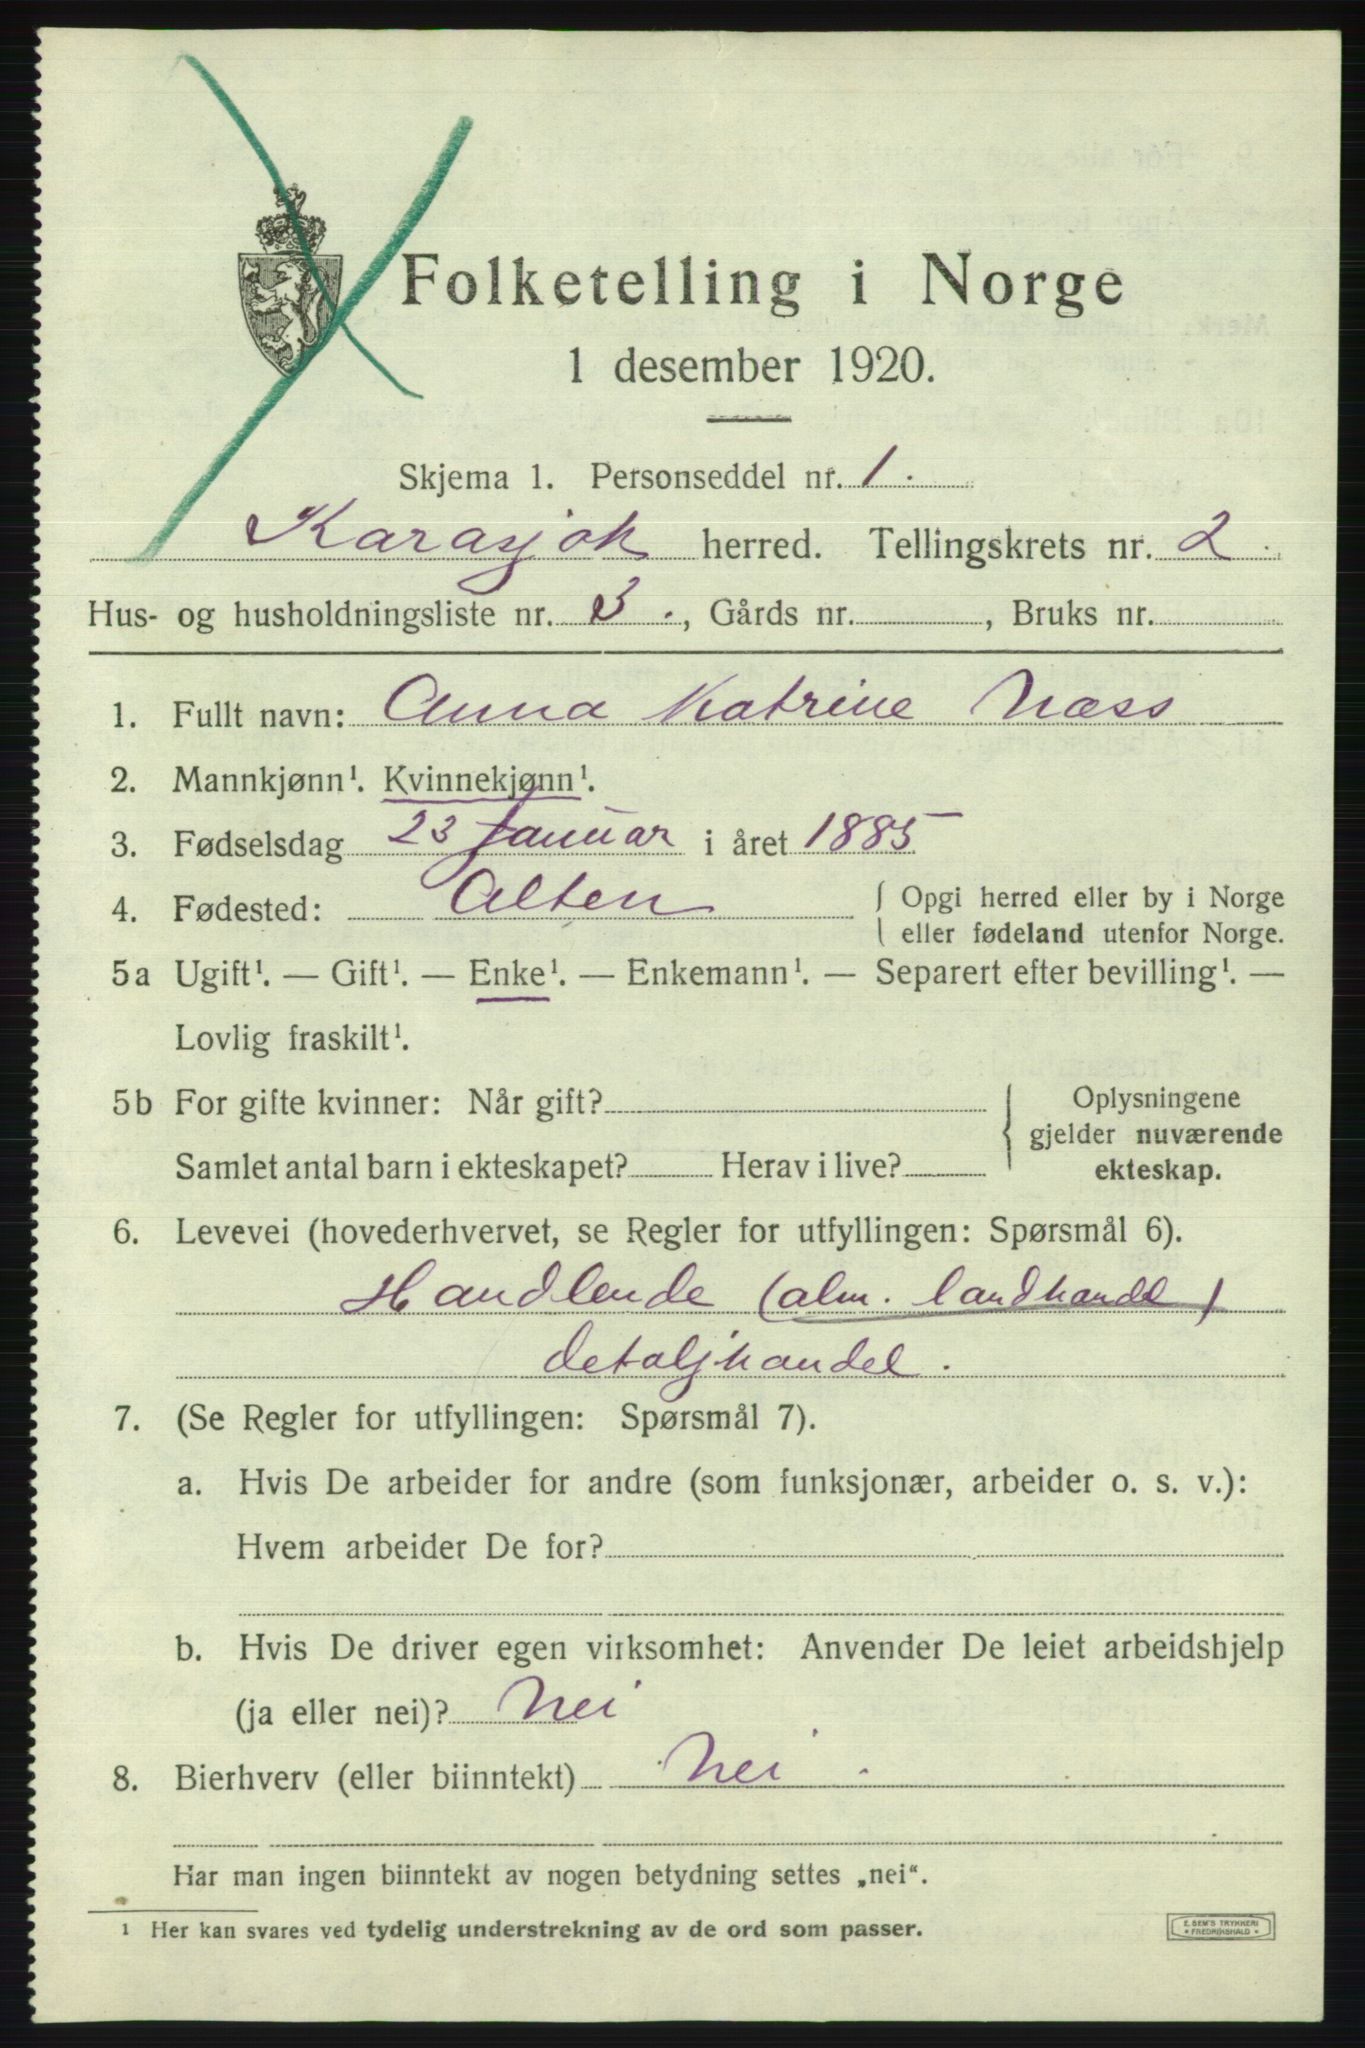 Folketelling i Norge
1 desember 1920.
Skjema 1. Personseddel nr. 1.
Karasjok herred. Tellingskrets nr. 2.
Hus- og husholdningsliste nr. 3., Gårds nr. , Bruks nr.
1. Fullt navn: Anna Katrine Næss
2. Mannkjønn¹. Kvinnekjønn¹.
3. Fødselsdag 23 Januar i året 1885
4. Fødested: Alten { Opgi herred eller by i Norge
eller fødeland utenfor Norge.
5a Ugift¹. — Gift¹. — Enke¹. — Enkemann¹. — Separert efter bevilling¹. —
Lovlig fraskilt¹.
5b For gifte kvinner: Når gift? Oplysningene
gjelder nuværende
Samlet antal barn i ekteskapet? Herav i live? ekteskap.
6. Levevei (hovederhvervet, se Regler for utfyllingen: Spørsmål 6).
Handlende (alm. landhandel)
detaljhandel.
7. (Se Regler for utfyllingen: Spørsmål 7).
a. Hvis De arbeider for andre (som funksjonær, arbeider o. s. v.):
Hvem arbeider De for?
b. Hvis De driver egen virksomhet: Anvender De leiet arbeidshjelp
(ja eller nei)? Nei
8. Bierhverv (eller biinntekt) Nei.
Har man ingen biinntekt av nogen betydning settes „nei“.
¹ Her kan svares ved tydelig understrekning av de ord som passer.
E. SEM'S TRYKKERI
* FREDRIKSHALD *